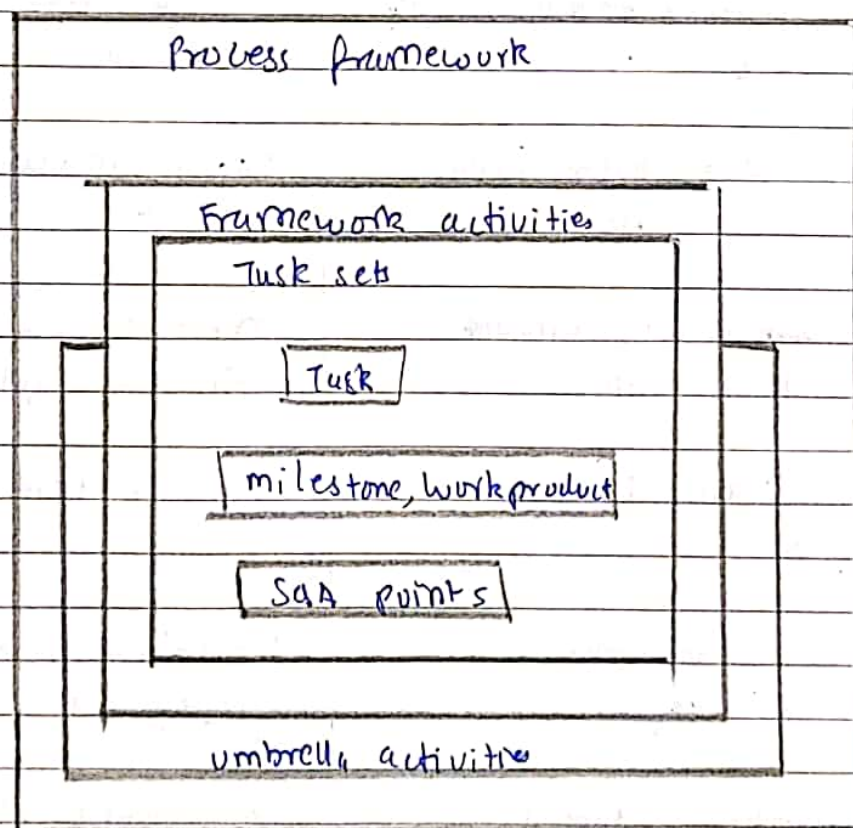 Process framework
Framework activities
Task sets
Task
milestone, workproduct
SQA points
umbrella activities